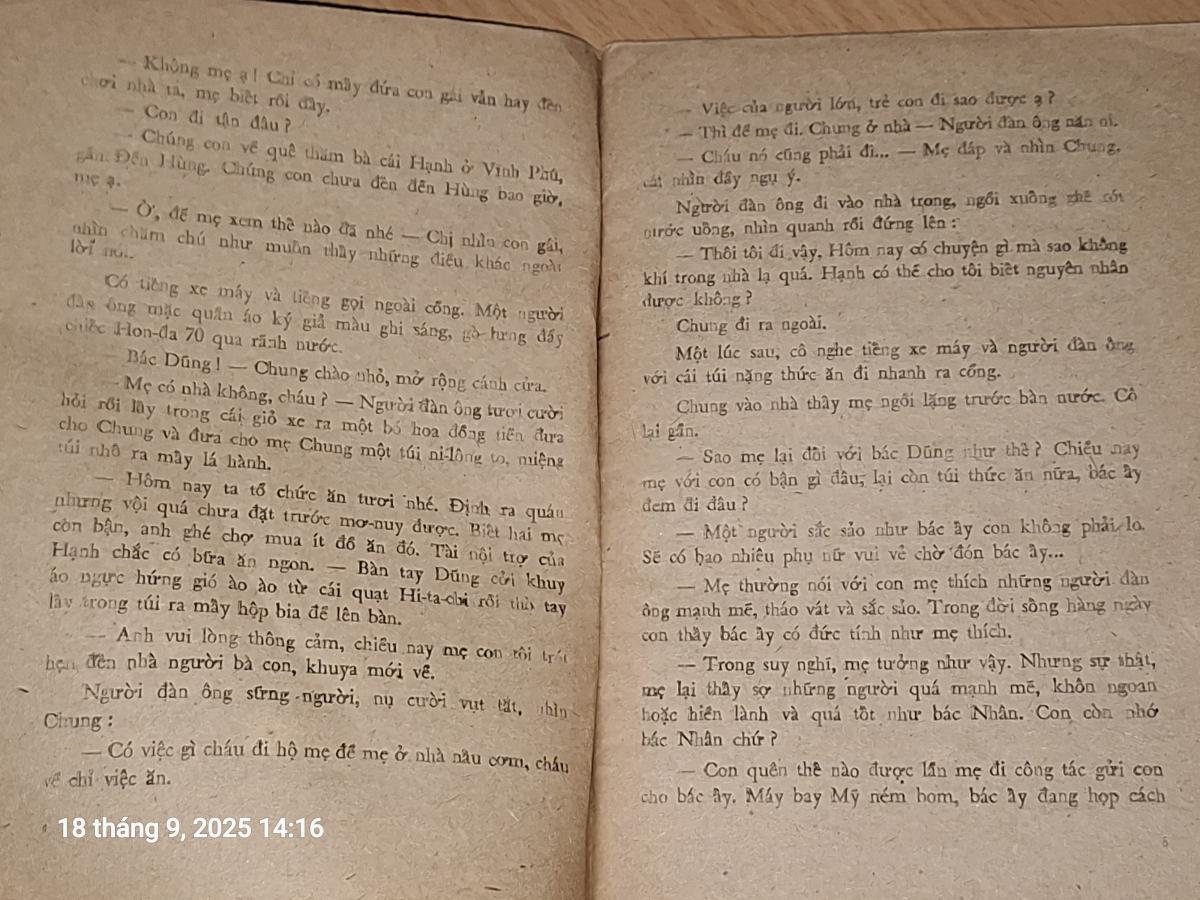 — Không mẹ ạ! Chỉ có mấy đứa con gái vẫn hay đến
chơi nhà ta, mẹ biết rồi đấy.
— Con đi tận đâu?
— Chúng con về quê thăm bà cái Hạnh ở Vĩnh Phú,
gần Đền Hùng. Chúng con chưa đến đền Hùng bao giờ,
mẹ ạ.
— Ờ, để mẹ xem thế nào đã nhé — Chị nhìn con gái,
nhìn chăm chú như muốn thấy những điều khác ngoài
lời nói.
Có tiếng xe máy và tiếng gọi ngoài cổng. Một người
đàn ông mặc quần áo ký giả màu ghi sáng, gò lưng đẩy
chiếc Hon-đa 70 qua rãnh nước.
— Bác Dũng! — Chung chào nhỏ, mở rộng cánh cửa.
— Mẹ có nhà không, cháu? — Người đàn ông tươi cười
hỏi rồi lấy trong cái giỏ xe ra một bó hoa đồng tiền đưa
cho Chung và đưa cho mẹ Chung một túi ni-lông to, miệng
túi nhô ra mấy lá hành.
— Hôm nay ta tổ chức ăn tươi nhé. Định ra quán
nhưng vội quá chưa đặt trước mơ-nuy được. Biết hai mẹ
con bận, anh ghé chợ mua ít đồ ăn đó. Tài nội trợ của
Hạnh chắc có bữa ăn ngon. — Bàn tay Dũng cởi khuy
áo ngực hứng gió ào ào từ cái quạt Hi-ta-chi rồi thò tay
lấy trong túi ra mấy hộp bia để lên bàn.
— Anh vui lòng thông cảm, chiều nay mẹ con tôi trót
hẹn đến nhà người bà con, khuya mới về.
Người đàn ông sững người, nụ cười vụt tắt, nhìn
Chung:
— Có việc gì cháu đi hộ mẹ để mẹ ở nhà nấu cơm, cháu
về chỉ việc ăn.
— Việc của người lớn, trẻ con đi sao được ạ?
— Thì để mẹ đi. Chung ở nhà — Người đàn ông năn nỉ.
— Cháu nó cũng phải đi... — Mẹ đáp và nhìn Chung,
cái nhìn đầy ngụ ý.
Người đàn ông đi vào nhà trong, ngồi xuống ghế rót
nước uống, nhìn quanh rồi đứng lên:
— Thôi tôi đi vậy. Hôm nay có chuyện gì mà sao không
khí trong nhà lạ quá. Hạnh có thể cho tôi biết nguyên nhân
được không?
Chung đi ra ngoài.
Một lúc sau, cô nghe tiếng xe máy và người đàn ông
với cái túi nặng thức ăn đi nhanh ra cổng.
Chung vào nhà thấy mẹ ngồi lặng trước bàn nước. Cô
lại gần.
— Sao mẹ lại đối với bác Dũng như thế? Chiều nay
mẹ với con có bận gì đâu, lại còn túi thức ăn nữa, bác ấy
đem đi đâu?
— Một người sắc sảo như bác ấy con không phải lo.
Sẽ có bao nhiêu phụ nữ vui vẻ chờ đón bác ấy...
— Mẹ thường nói với con mẹ thích những người đàn
ông mạnh mẽ, tháo vát và sắc sảo. Trong đời sống hàng ngày
con thấy bác ấy có đức tính như mẹ thích.
— Trong suy nghĩ, mẹ tưởng như vậy. Nhưng sự thật,
mẹ lại thấy sợ những người quá mạnh mẽ, khôn ngoan
hoặc hiền lành và quá tốt như bác Nhân. Con còn nhớ
bác Nhân chứ?
— Con quên thế nào được lần mẹ đi công tác gửi con
cho bác ấy. Máy bay Mỹ ném bom, bác ấy đang họp cách
18 tháng 9, 2025 14:16